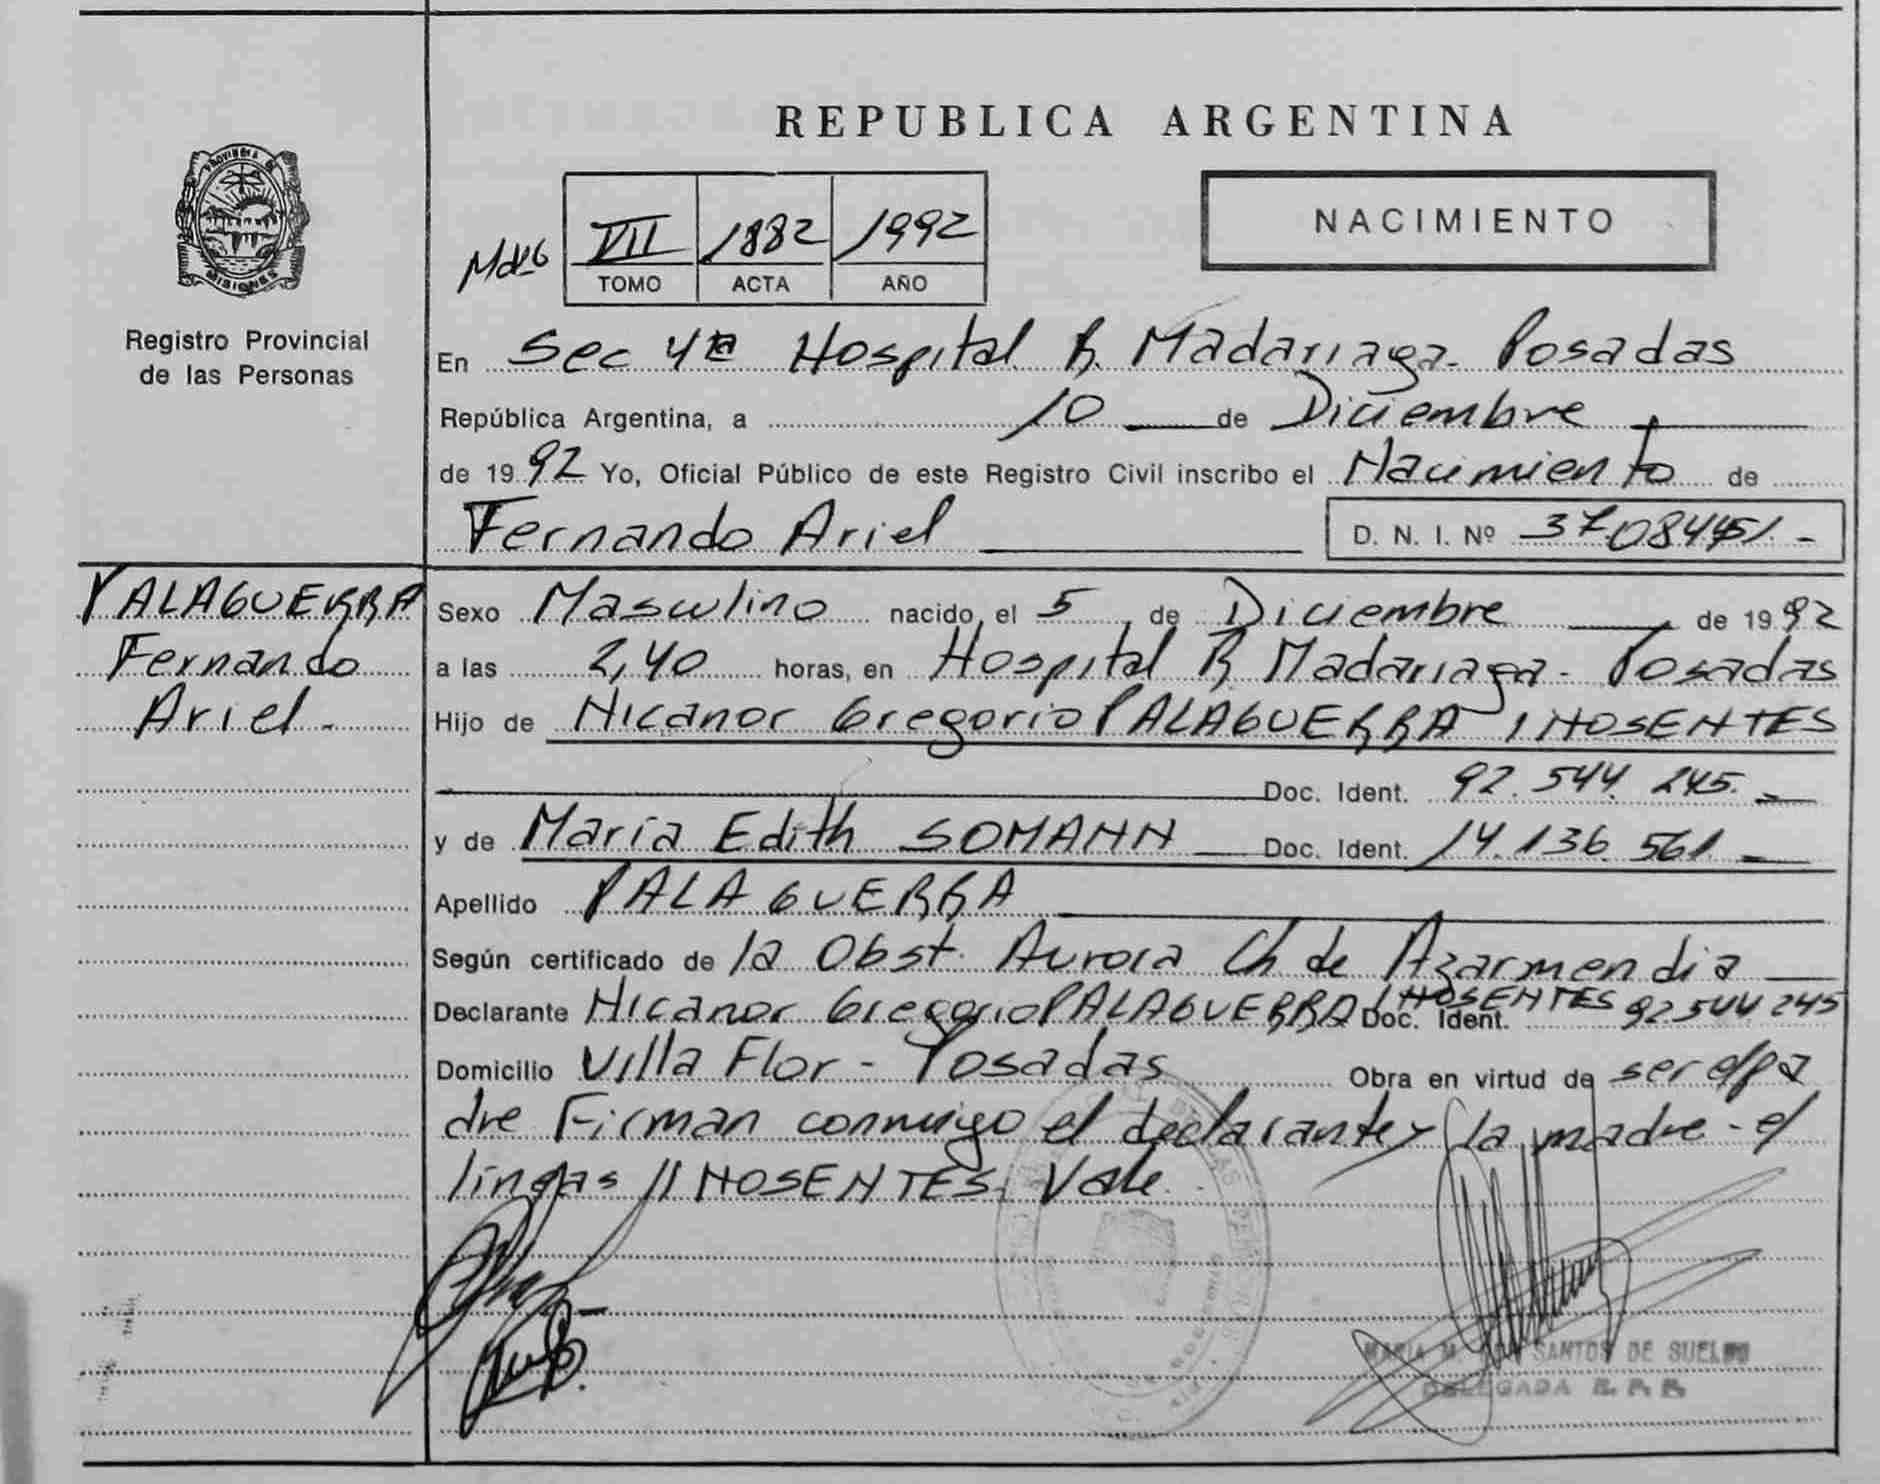 REPUBLICA ARGENTINA
PROVINCIA DE MISIONES
Registro Provincial
de las Personas
NACIMIENTO
VII 1882 1992
TOMO ACTA AÑO
En Sec 4ta Hospital R. Madariaga - Posadas
República Argentina, a 10 de Diciembre
de 1992 Yo, Oficial Público de este Registro Civil inscribo el Nacimiento de
Fernando Ariel D. N. I. Nº
PALAGUERRA
Fernando
Ariel.-
Sexo Masculino nacido el 5 de Diciembre de 1992
a las 2,40 horas, en Hospital R Madariaga - Posadas
Hijo de Nicanor Gregorio PALAGUERRA INOSENTES
Doc. Ident. 92.544.245.-
y de María Edith SOMANN Doc. Ident. 14.136.561.-
Apellido PALAGUERRA
Según certificado de la Obst. Aurora Ch de Azarmendia
Declarante Nicanor Gregorio PALAGUERRA INOSENTES Doc. Ident. 92.544 245
Domicilio Villa Flor - Posadas Obra en virtud de ser el pa
dre Firman conmigo el declarante y la madre - e/
lineas // INOSENTES. Vale.
MARIA M. SANTOS DE SUELDO
DELEGADA R. P. P.